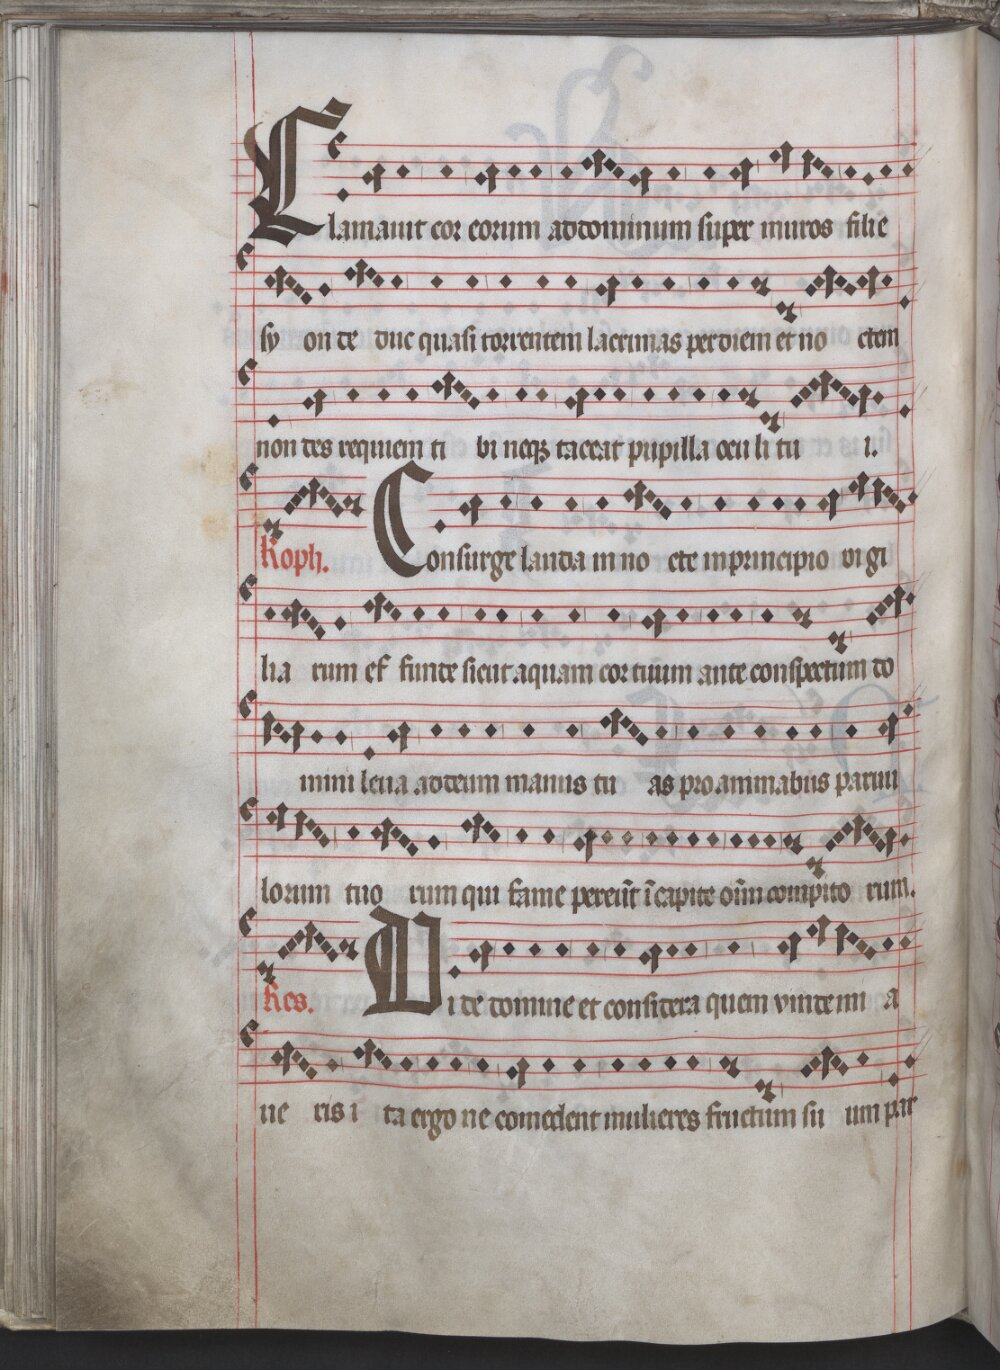 Clamauit cor eorum addominum super muros filie
sy on de duc quasi torrentem lacrimas perdiem et no ctem
non des requiem ti bi neqꝫ taceat pupilla ocu li tu i.
Koph. Consurge lauda in no cte inprincipio vi gi
lia rum ef funde sicut aquam cor tuum ante conspectum do
mini leua adeum manus tu as pro animabus paruu
lorum tuo rum qui fame pereūt ī capite oīm compito rum.
Res. Vi de domine et considera quem vindemi a
ue ris i ta ergo ne comedent mulieres fructum su um par